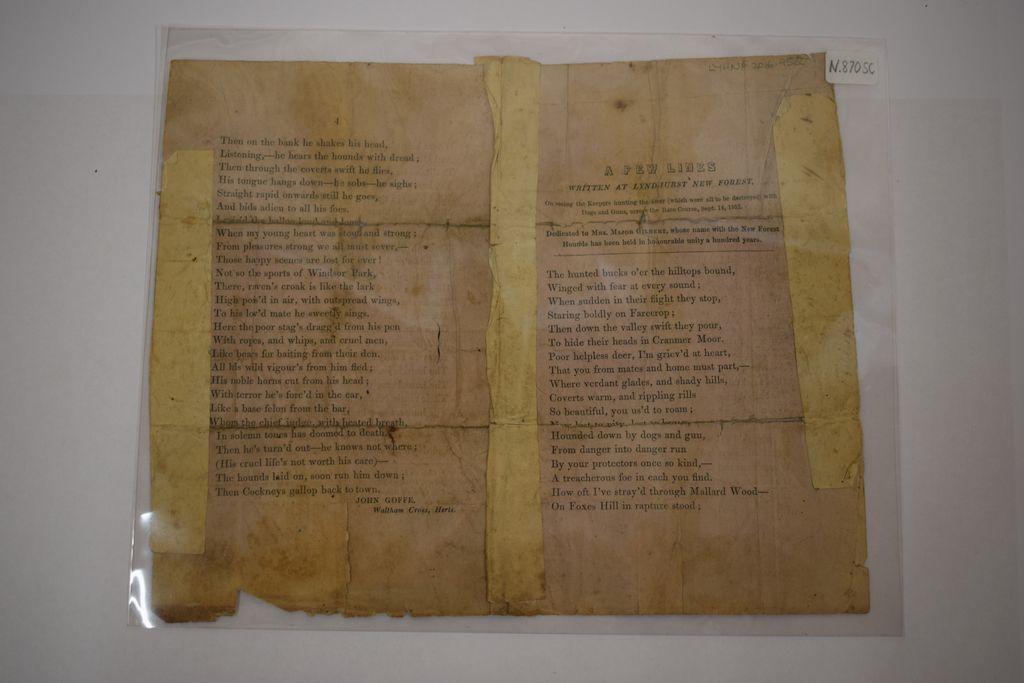 4
Then on the bank he shakes his head,
Listening,—he hears the hounds with dread;
Then through the coverts swift he flies,
His tongue hangs down—he sobs—he sighs;
Straight rapid onwards still he goes,
And bids adieu to all his foes.
the halloo loud and long,
When my young heart was stout and strong;
From pleasures strong we all must sever,—
Those happy scenes are lost for ever!
Not so the sports of Windsor Park,
There, raven's croak is like the lark
High pois'd in air, with outspread wings,
To his lov'd mate he sweetly sings.
Here the poor stag's dragg'd from his pen
With ropes, and whips, and cruel men,
Like bears for baiting from their den.
All his wild vigour's from him fled;
His noble horns cut from his head;
With terror he's forc'd in the car,
Like a base felon from the bar,
Whom the chief judge, with heated breath,
In solemn tones has doomed to death,
Then he's turn'd out—he knows not where;
(His cruel life's not worth his care)—
The hounds laid on, soon run him down;
Then Cockneys gallop back to town.
JOHN GOFFE,
Waltham Cross, Herts.
N.8705C
A FEW LINES
WRITTEN AT LYNDHURST NEW FOREST,
On seeing the Keepers hunting the deer (which were all to be destroyed) with
Dogs and Guns, across the Race Course, Sept. 14,
Dedicated to Mrs. Major Gilbert, whose name with the New Forest
Hounds has been held in honourable unity a hundred years.
The hunted bucks o'er the hilltops bound,
Winged with fear at every sound;
When sudden in their flight they stop,
Staring boldly on Farecrop;
Then down the valley swift they pour,
To hide their heads in Cranmer Moor.
Poor helpless deer, I'm griev'd at heart,
That you from mates and home must part,—
Where verdant glades, and shady hills,
Coverts warm, and rippling rills
So beautiful, you us'd to roam;
Hounded down by dogs and gun,
From danger into danger run
By your protectors once so kind,—
A treacherous foe in each you find.
How oft I've stray'd through Mallard Wood—
On Foxes Hill in rapture stood;